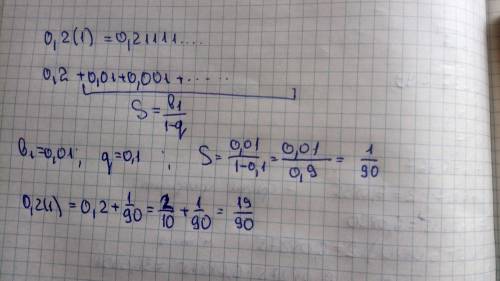 0,2(1) = 0,21111....
0,2 + 0,01 + 0,001 + ......
S = b₁/1-q
b₁=0,01; q=0,1 ; S = 0,01/1-0,1 = 0,01/0,9 = 1/90
0,2(1) = 0,2 + 1/90 = 2/10 + 1/90 = 19/90